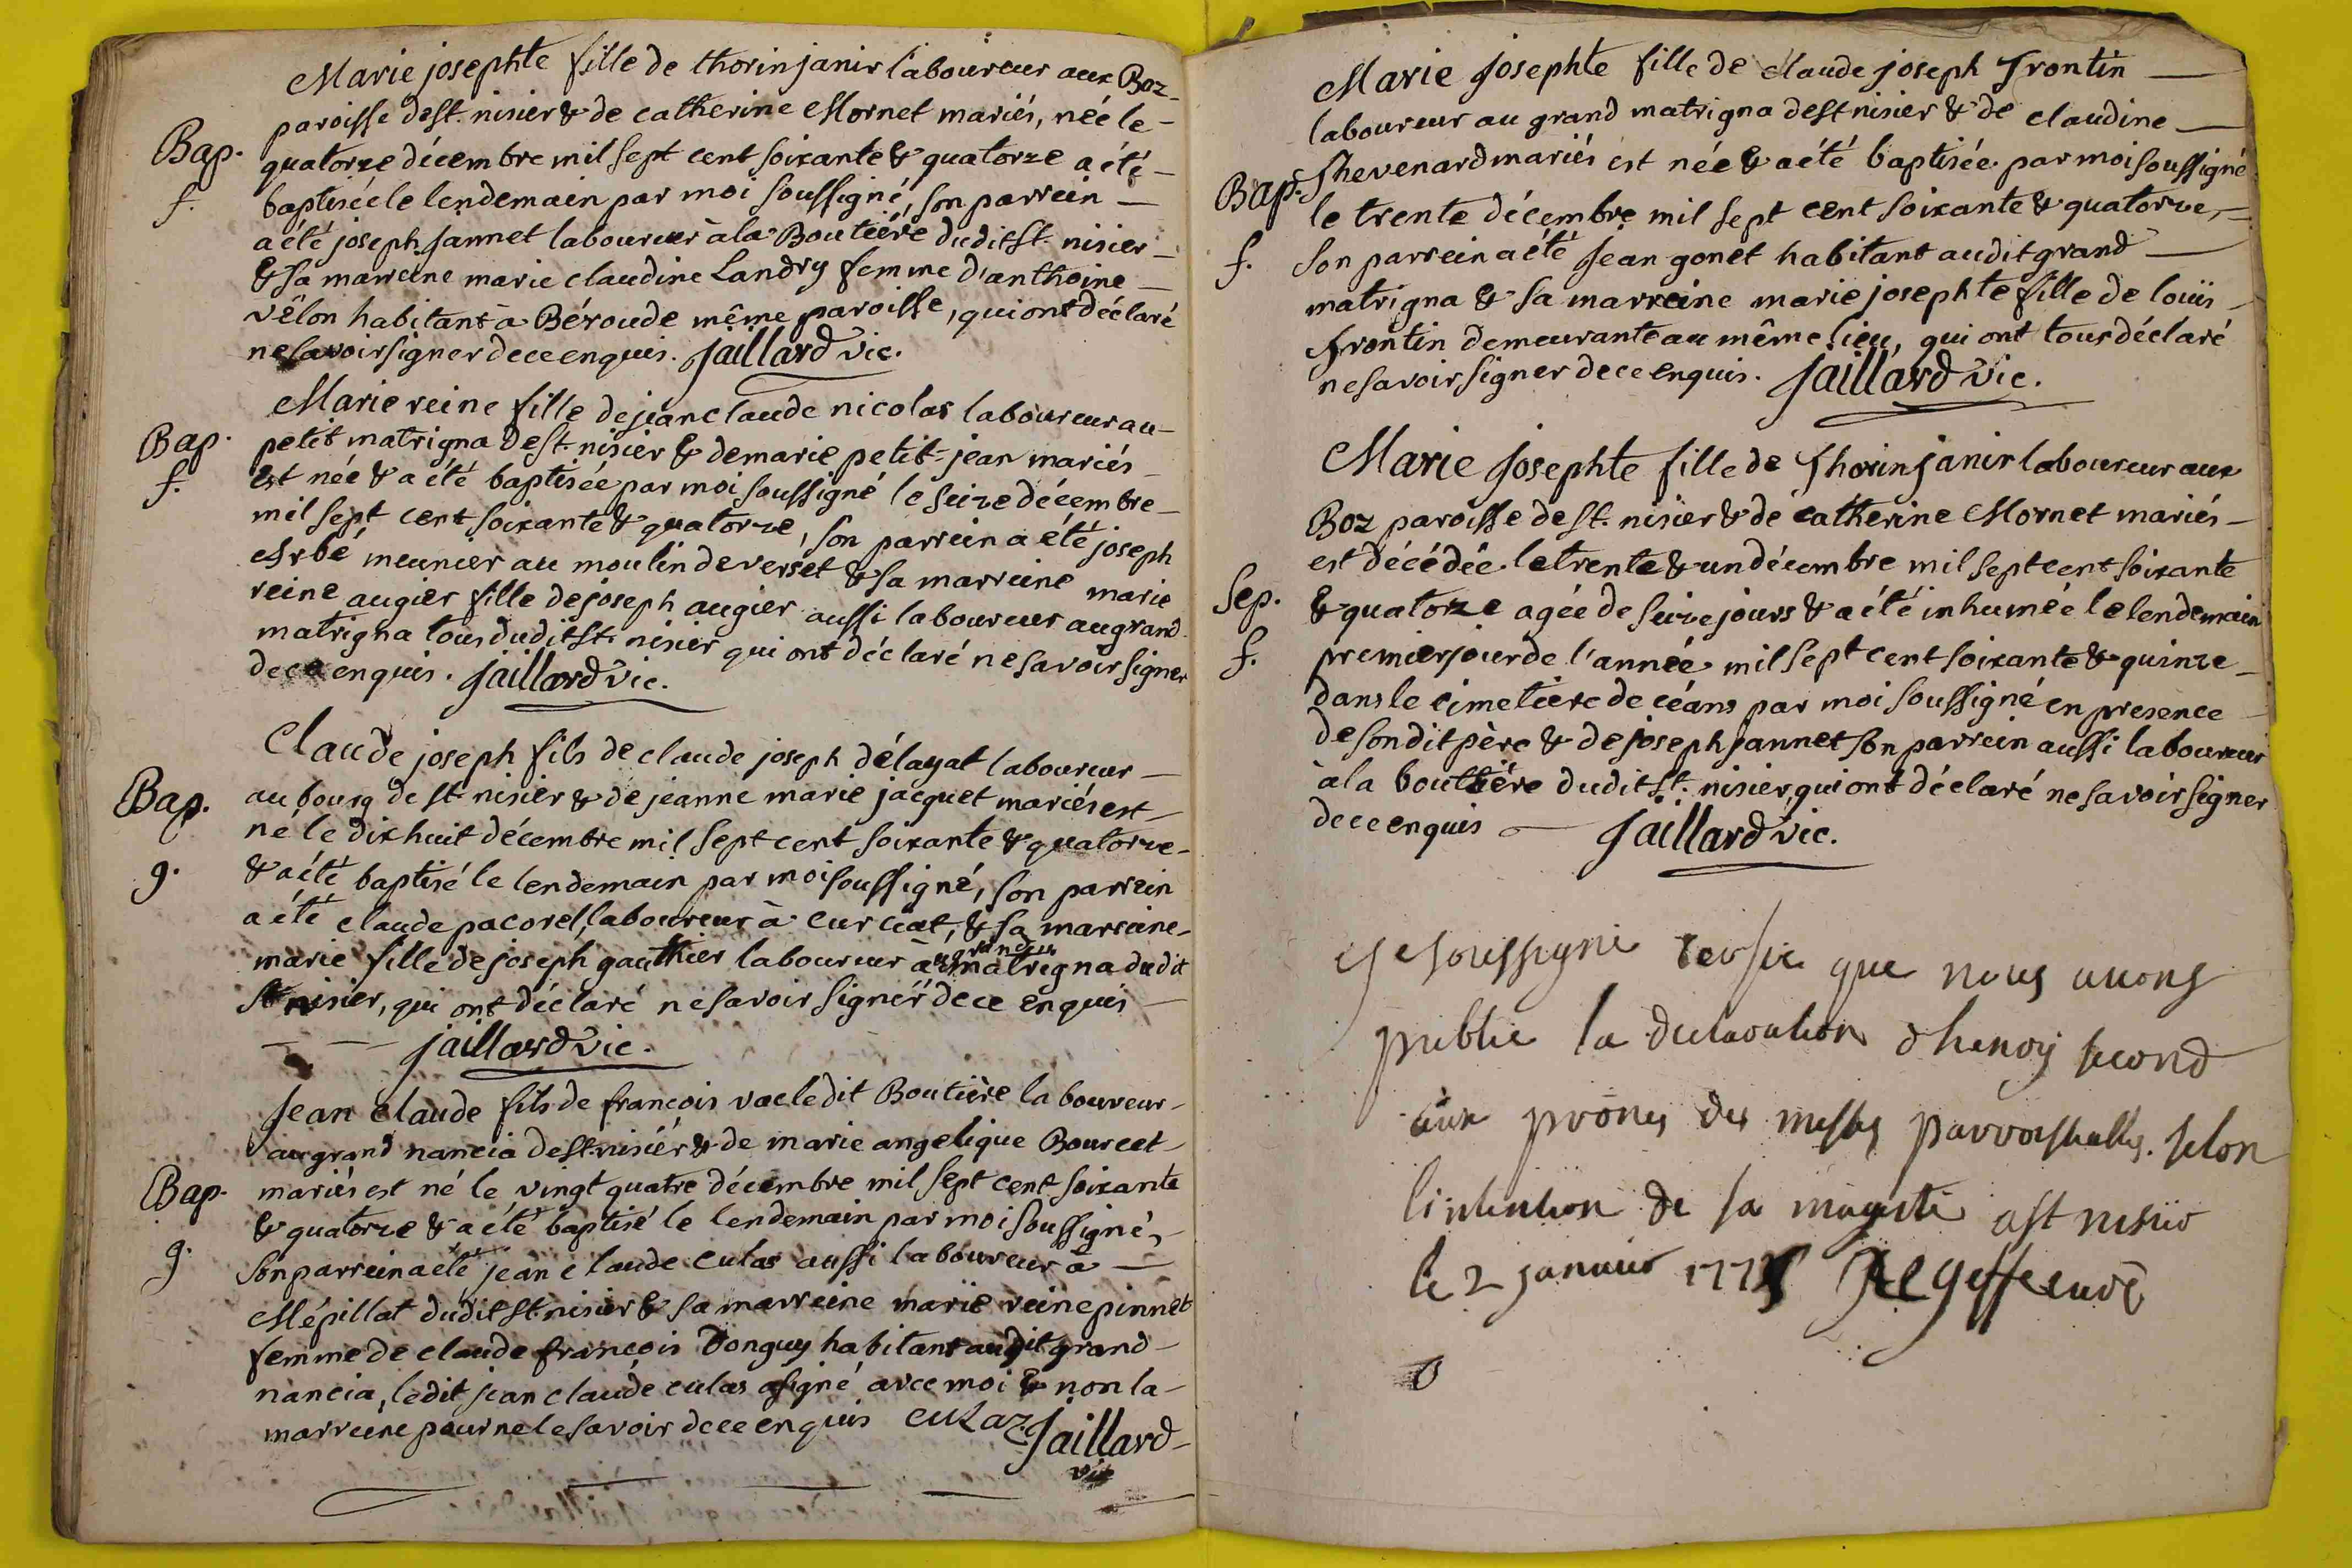 Marie josephte fille de thorin janin laboureur aux Boz-
paroisse de st. nisier & de catherine Mornet mariés, née le-
Bap. quatorze décembre mil sept cent soixante & quatorze a été-
f. baptisée le lendemain par moi soussigné, son parrein —
a été joseph jannet laboureur à la Boutière dudit st. nisier-
& sa marreine marie claudine Landry femme d'anthoine —
vêlon habitant à Béroude même paroisse, qui ont déclaré
ne savoir signer de ce enquis. jaillard vic.
Marie reine fille de jean claude nicolas laboureur au-
Bap. petit matrigna de st. nisier & de marie petit-jean mariés
f. est née & a été baptisée par moi soussigné le seize décembre-
mil sept cent soixante & quatorze, son parrein a été joseph
Arbé meunier au moulin de verset & sa marreine marie
reine augier fille de joseph augier aussi laboureur au grand
matrigna tous dudit st. nisier qui ont déclaré ne savoir signer
de ce enquis. jaillard vic.
Claude joseph fils de claude joseph délayat laboureur —
Bap. au bourg de st nisier & de jeanne marie jacquet mariés est-
né le dix huit décembre mil sept cent soixante & quatorze-
g. & a été baptisé le lendemain par moi soussigné, son parrein
a été claude pacorel, laboureur à curciat, & sa marreine-
marie fille de joseph gauthier laboureur au grand matrigna dudit
st nisier, qui ont déclaré ne savoir signer de ce enquis —
— — jaillard vic.
Jean claude fils de francois vacle dit Boutière laboureur-
au grand nancia de st. nisier & de marie angelique Bourcet-
Bap. mariés est né le vingt quatre décembre mil sept cent soixante
& quatorze & a été baptisé le lendemain par moi soussigné,-
g. son parrein a été jean claude culas aussi laboureur à —
Mépillat dudit st. nisier & sa marreine marie reine pinnet
femme de claude françois Donguy habitant audit grand-
nancia, ledit jean claude culas a signé avec moi & non la-
marreine pour ne le savoir de ce enquis culaz jaillard-
vic
Marie josephte fille de claude joseph frontin —
laboureur au grand matrigna de st nisier & de claudine —
Bap. Thevenard mariés est née & a été baptisée par moi soussigné
le trente décembre mil sept cent soixante & quatorze,-
f. son parrein a été jean gonet habitant audit grand —
matrigna & sa marreine marie josephte fille de louis -
frontin demeurante au même lieu, qui ont tous déclaré
ne savoir signer de ce enquis. jaillard vic.
Marie josephte fille de Thorin janin laboureur aux
Boz paroisse de st. nisier & de catherine Mornet mariés-
est décédée le trente & un décembre mil sept cent soixante
Sep. & quatorze agée de seize jours & a été inhumée le lendemain
f. premier jour de l'année mil sept cent soixante & quinze-
dans le cimetière de céans par moi soussigné en presence
de son dit père & de joseph jannet son parrein aussi laboureur
à la bouthière dudit st. nisier, qui ont déclaré ne savoir signer
de ce enquis — jaillard vic.
je soussigné certifie que nous avons
publié la declaration d henry second
aux prônes des messes parroissialles. selon
l'intention de sa majesté a st nisier
le 2 janvier 1775